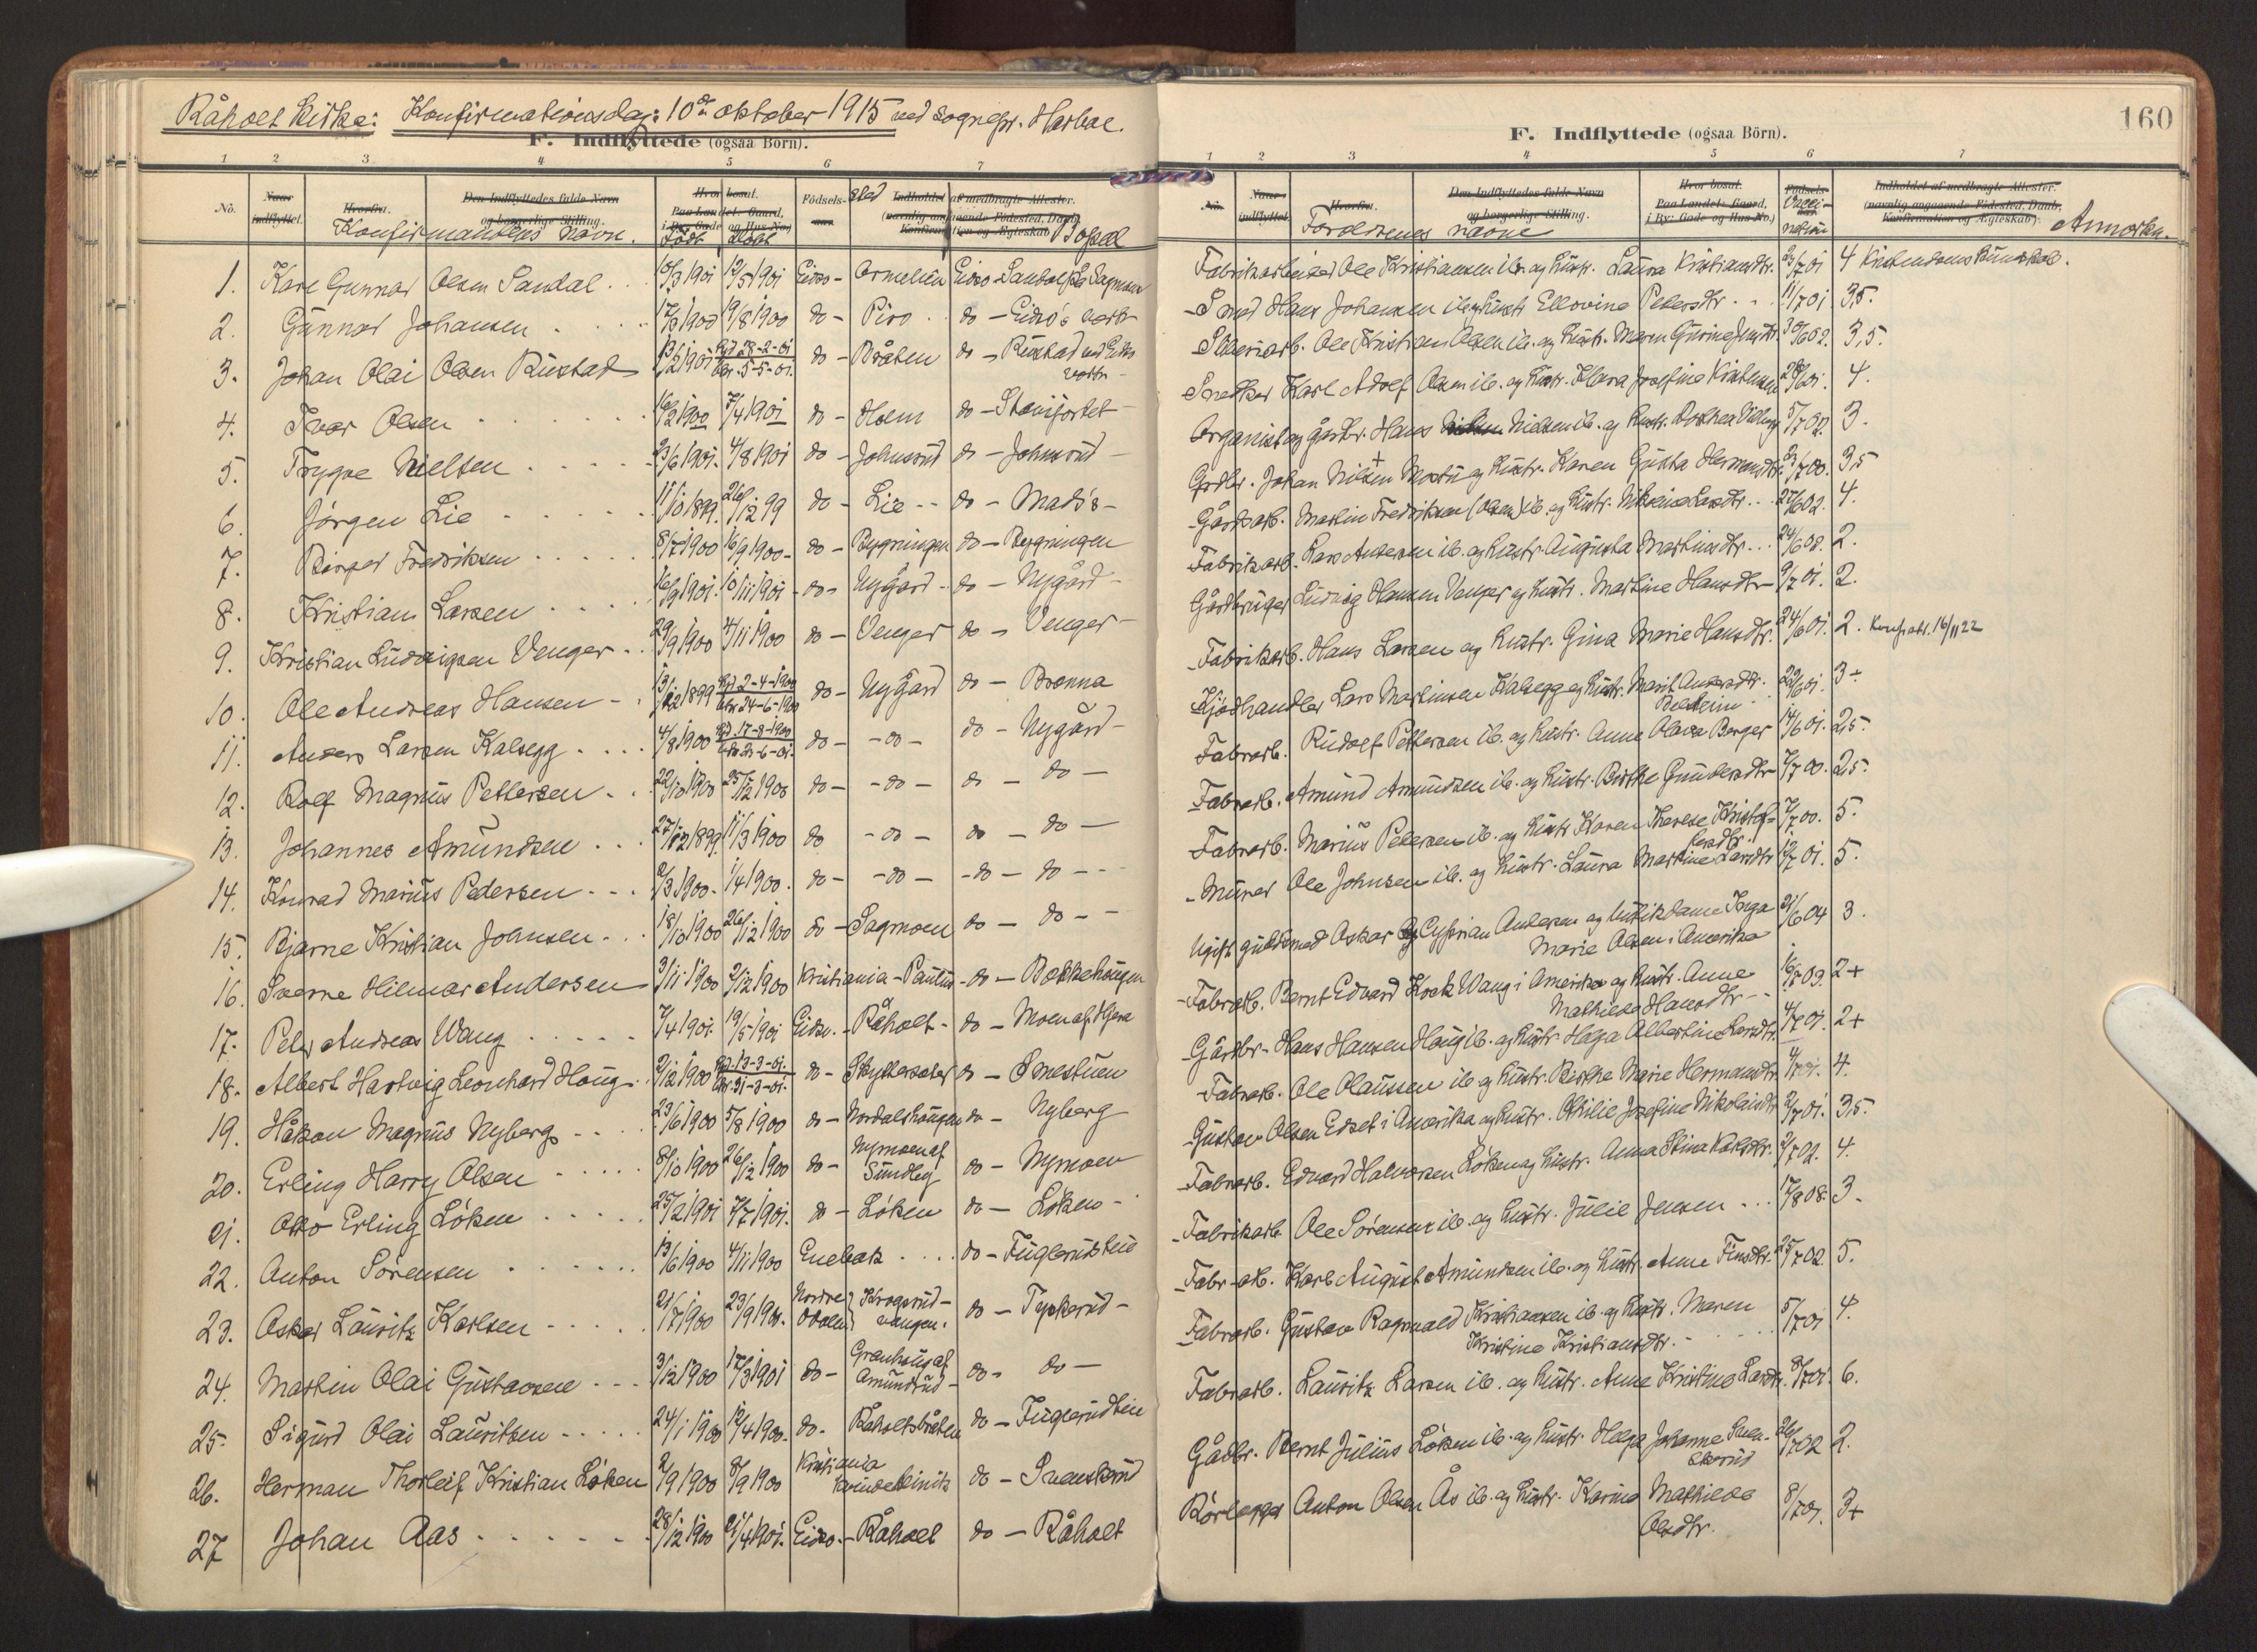 Råholt Kirke: Konfirmationsdag: 10de oktober 1915 ved sognepr. Harboe.
F. Indflyttede (ogsaa Börn).
1 2 3 4 5 6 7
No. Naar indflyttet. Hvorfra. Den Indflyttedes fulde Navn og borgerlige Stilling. Hvor bosat. Paa Landet: Gaard, i By: Gade og Hus-No.) Födsels- sted Indholdet af medbragte Attester. (navnlig angaaende Födested, Daab, Konfirmation og Ægteskab)
Konfirmandens navn. Født Døbt Bopæl
1. Kare Gunnar Olsen Sandal . . 10/3 1901 12/5 1901 Eidsv - Ormelien Eidsv - Sandal på Sagmoen
2. Gunnar Johansen . . . . 17/3 1900 19/8 1900 do - Piro . . do - Eidsv's værk
3. Johan Olai Olsen Rustad 13/2 1901 Hjd. 28-2-01 Kr. 5-5-01. do - Bråten do - Rustad ved Eidsv værk -
4. Ivar Olsen . . . . 16/2 1900 7/4 1901 do - Holm do - Stavijordet -
5. Trygve Nielsen . . . . 23/6 1901. 4/8 1901 do - Johnsrud do - Johnsrud -
6. Jörgen Lie . . . . 11/10 1899. 26/12 99 do - Lie - - do - Madis -
7. Birger Fredriksen . . . . 8/7 1900 16/9 1900 - do - Bygningen do - Bygningen
8. Kristian Larsen . . . . 16/9 1901. 10/11 1901 - do - Nygård - do - Nygård -
9. Kristian Ludvigsen Venger . . 29/9 1900 4/11 1900 do - Venger do - Venger -
10. Ole Andreas Hansen - . 13/12 1899 Hjd. 2-4-1900 Kr. 24-6-1900 do - Nygård do - Brenna
11. Anders Larsen Kalsegg . . . . 4/8 1900 Hjd. 17-8-1900 Kr. 23-6-01. do - - do - do - Nygård -
12. Rolf Magnus Pettersen . . 22/10 1900 25/12 1900 do - - do - do - do -
13. Johannes Amundsen . . . 27/12 1899. 11/3 1900 do - do - do - do -
14. Konrad Marius Pedersen . . . 2/3 1900. 1/4 1900. do - - do - - do - do - -
15. Bjarne Kristian Johnsen . . . 18/10 1900 26/12 1900 do - Sagmoen do - do - -
16. Sverre Hilmar Andersen 3/11 1900 2/12 1900 Kristiania - Paulus - do - Bækkehaugen
17. Peter Andreas Wang . . . . . 7/4 1901. 19/5 1901 Eidsv. - Råholt - do - Moen af Hjera
18. Albert Hartvig Leonhard Haug . 2/12 1900 Hjd. 13-3-01. Kr. 31-3-01. do - Skyttersæter do - Smestuen
19. Håkon Magnus Nyberg . - - - 23/6 1900 5/8 1900 do - Nordalshaugen do - Nyberg
20. Erling Harry Olsen - - . . . . 8/10 1900 26/12 1900 do - Nymoen af Sundby do - Nymoen
21. Otto Erling Löken . . . . . 25/2 1901 7/7 1901. do - Löken do - Löken -
22. Anton Sörensen . . . . . . . 13/6 1900 4/11 1900 Enebak . . . . do - Fuglerudteie
23. Oskar Lauritz Karlsen - - - . . 21/7 1900 23/9 1900. Nordre Odalen } Krogsrud- vangen. do - Tyskerud -
24. Martin Olai Gustavsen - - - 3/12 1900 17/3 1901 do - Granhaug af Amundrud - do - do -
25. Sigurd Olai Lauritsen - - . . . 24/1 1900 12/4 1900. do. Råholtsbråten do - Fuglerudteie
26. Herman Thorleif Kristian Löken 2/9 1900 8/9 1900 Kristiania kvindeklinik do - Svenskerud
27 Johan Aas . . . . . . . 28/12 1900 21/4 1901. Eidsv. - Råholt do - Råholt
160
F. Indflyttede (ogsaa Börn).
1 2 3 4 5 6 7
No. Naar indflyttet. Hvorfra. Den Indflyttedes fulde Navn og borgerlige Stilling. Hvor bosat. Paa Landet: Gaard, i By: Gade og Hus-No.) Födsels- Indholdet af medbragte Attester. (navnlig angaaende Födested, Daab, Konfirmation og Ægteskab).
Forældrenes navne Vacci- nation Anmerkn.
Fabrikarbeider Ole Kristiansen ib. og hustr. Laura Kristiansdtr. 23/7 01 4 Kristendoms kundskab.
- Smed Hans Johansen ib. og hustr. Ellovine Petersdtr . . . 11/7 01 3,5.
Sliberiarb. Ole Kristian Olsen ib. og hustr. Maren Gurine 30/6 02. 3,5.
Snedker Karl Adolf Olsen ib. og hustr. Klara Josefine Kristensen 28/6 01. 4.
Organist og gårdbr. Hans Nielsen ib. og hustr. Dorthea 5/7 02. 3.
Gårdbr. Johan Nilsen Mortu og hustr. Karen Gusta Hermansdtr. 2/7 00. 3,5
- Gårdsarb. Martin Fredriksen (Olsen) ib. og hustr. Nikoline Larsdtr. . . 27/6 02. 4.
Fabrikarb. Lars Andersen ib. og hustr. Augusta Martinsdtr. . . 24/6 08. 2.
Gårdbruger Ludvig Hansen Venger og hustr. Martine Hansdtr - 9/7 01. 2.
- Fabrikarb. Hans Larsen og hustr. Gina Marie Hansdtr. 24/6 01. 2. Konf.att. 16/11 22
Kjødhandler Lars Martinsen Kalsegg og hustr. Marit Andersdtr. Belsheim 29/6 01. 3 +
Fabrarb. Rudolf Pettersen ib. og hustr. Anne Olava Berger 14/6 01. 2,5.
Fabrarb. Amund Amundsen ib. og hustr. Birthe Gundersdtr 7/7 00. 2,5.
Fabrarb. Marius Petersen ib. og hustr Karen Therese Kristof- fersdtr. 7/7 00. 5.
- Murer Ole Johnsen ib. og hustr. Laura Martine Larsdtr 12/7 01. 5.
Ugift guldsmed Oskar Cyprian Andersen og butikdame Inga Marie Olsen i Amerika 21/6 04 3.
- Fabrarb. Bernt Edvard Kock Wang i Amerika og hustr. Anne Mathilde Hansdtr - - 16/7 09. 2 +
Gårdbr. Hans Hansen Haug ib. og hustr. Helga Albertine Larsdtr. 4/7 01. 2 +
- Fabrarb. Ole Olaussen ib. og hustr. Birthe Marie Hermansdtr. 4/7 01. 4.
Gustav Olsen Edset i Amerika og hustr. Othilie Josefine Nikolaisdtr. 2/7 01. 3,5.
- Fabrarb. Edvard Halvorsen Löken og hustr. Anna Stina Karlsdtr. 2/7 02. 4.
- Fabrikarb. Ole Sörensen ib. og hustr. Julie Jensen . . . 17/8 08. 3.
- Fabr-arb. Karl August Amundsen ib. og hustr. Anne Finsdtr. 25/7 02. 5.
Fabrarb. Gustav Ragnvald Kristiansen ib. og hustr. Maren Kristine Kristiansdtr. - . . . 5/7 01 4.
Fabrarb. Lauritz Larsen ib. og hustr. Anne Kristine Larsdtr. 8/7 01. 6.
Gårdbr. Bernt Julius Löken ib. og hustr. Helga Johanne Sven- skerud 26/7 02 2.
Rörlegger Anton Olsen Ås ib. og hustr. Karine Mathilde Olsdtr. 8/7 01. 3 +